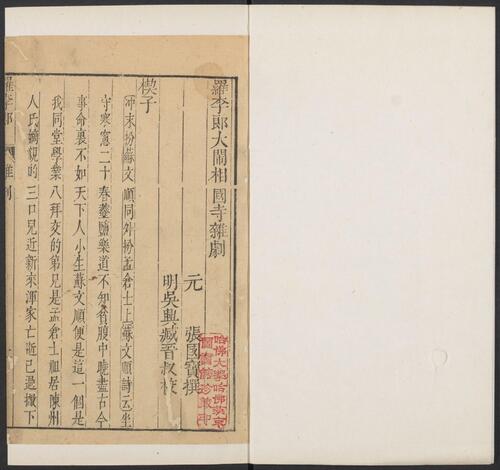 羅李郎大閙相國寺雜劇
元 張國寶撰
明吳興臧晉叔校
楔子
冲末扮蘇文順同外扮孟倉士上蘇文順詩云坐
守寒窻二十春虀鹽樂道不知貧腹中曉盡古今
事命裏不如天下人小生蘇文順便是這一個是
我同堂學業八拜交的第兄是孟倉士祖居陳州
人氏嫡親的三口兒近新來渾家亡逝已過撇下
羅李郎 雜劇
哈佛大學哈佛燕京圖書館珍藏印